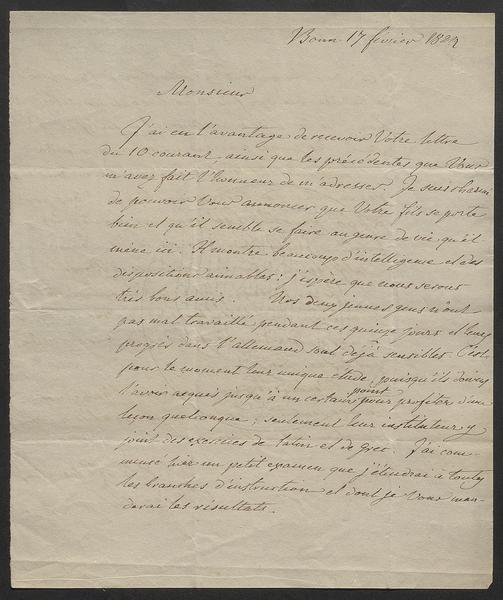 Bonn 17 février 182
Monsieur
J'ai eu l'avantage de recevoir Votre lettre
du 10 courant, ainsi que les précédentes que Vous
m'avez fait l'honneur de m'adresser. Je suis charmé
de pouvoir Vous annoncer que Votre fils se porte
bien et qu'il semble se faire au genre de vie, qu'il
mène ici. Il montre beaucoup d'intelligence et des
dispositions aimables; j'espère que nous serons
très bons amis. Nos deux jeunes gens n'ont
pas mal travaillé pendant ces quinze jours et leurs
progrès dans l'allemand sont déjà sensibles. C'est
pour le moment leur unique etude, puisqu'ils doivent
l'avoir acquis jusqu'à un certain point pour profiter d'une
leçon quelconque; seulement leur instituteur y
joint des exercices de latin et de Grec. J'ai com-
mencé hier un petit examen que j'étendrai à toutes
les branches d'instruction et dont je Vous man-
derai les résultats.